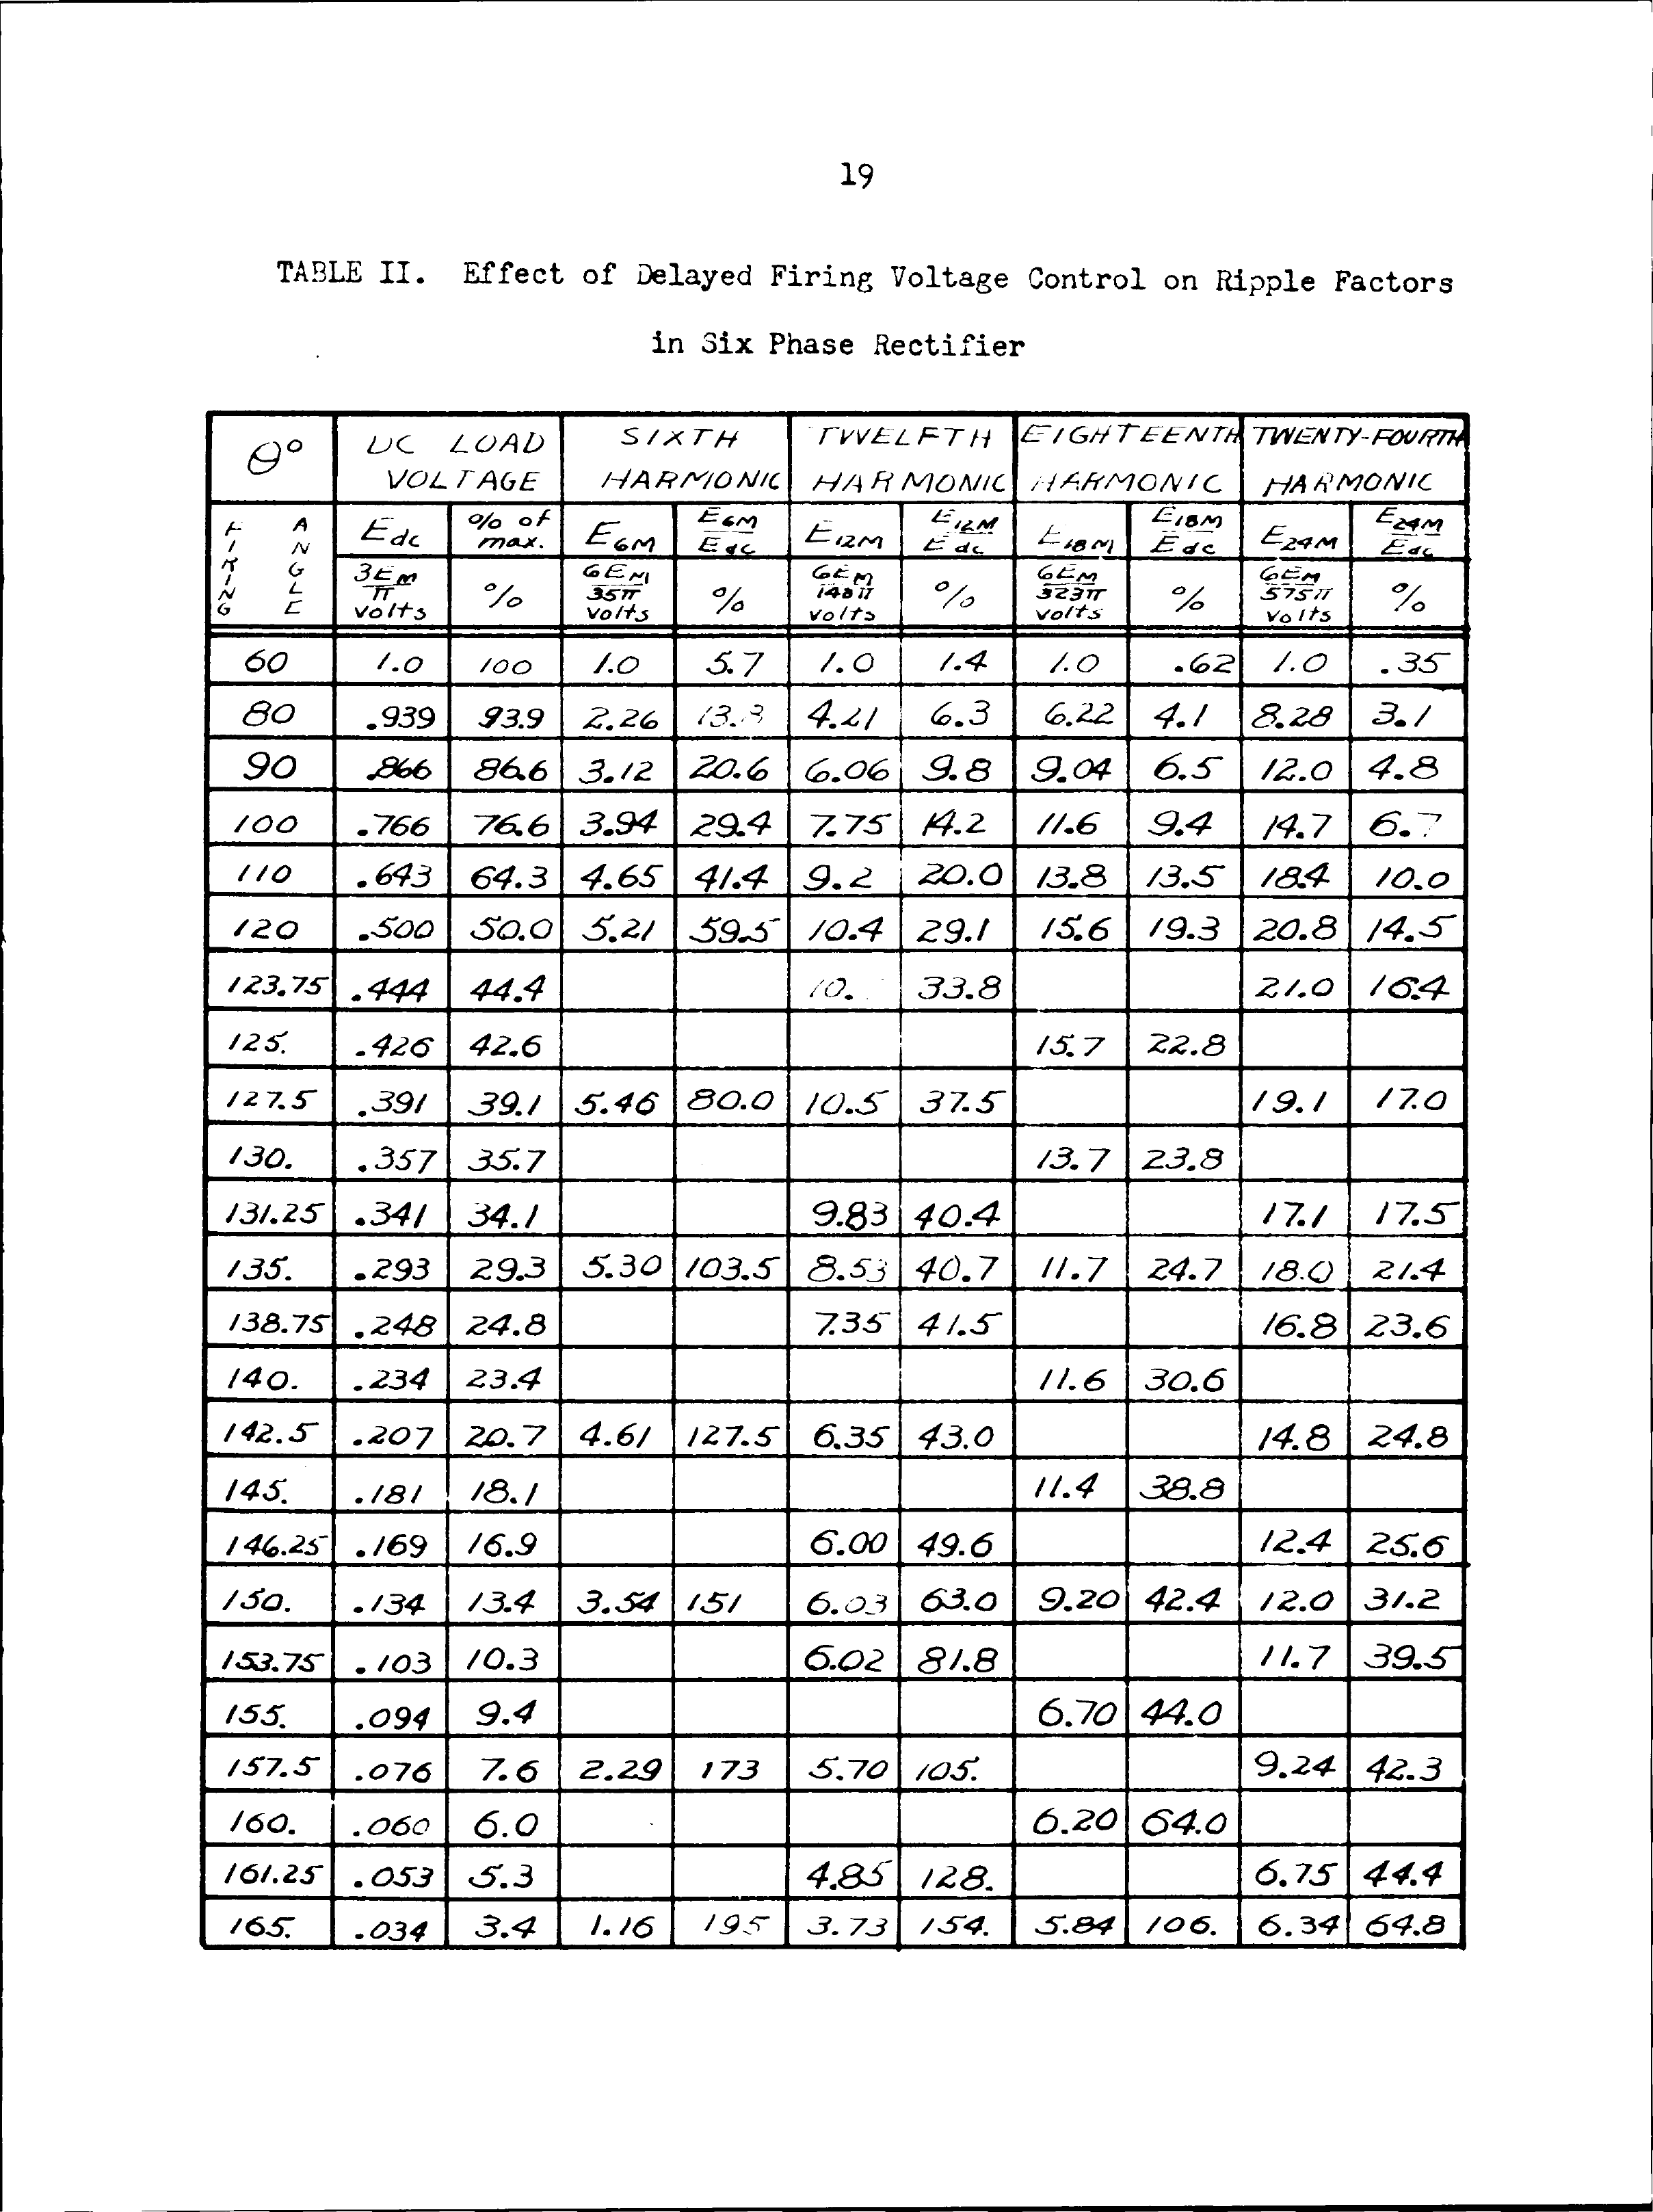 19
TABLE II. Effect of Delayed Firing Voltage Control on Ripple Factors
in Six Phase Rectifier
θ° DC LOAD VOLTAGE SIXTH HARMONIC TWELFTH HARMONIC EIGHTEENTH HARMONIC TWENTY-FOURTH HARMONIC
FIRING ANGLE Edc % of max. E6M E6M/Edc E12M E12M/Edc E18M E18M/Edc E24M E24M/Edc
3EM/π volts % 6EM/35π volts % 6EM/143π volts % 6EM/323π volts % 6EM/575π volts %
60 1.0 100 1.0 5.7 1.0 1.4 1.0 .62 1.0 .35
80 .939 93.9 2.26 13.8 4.21 6.3 6.22 4.1 8.28 3.1
90 .866 86.6 3.12 20.6 6.06 9.8 9.04 6.5 12.0 4.8
100 .766 76.6 3.94 29.4 7.75 14.2 11.6 9.4 14.7 6.7
110 .643 64.3 4.65 41.4 9.2 20.0 13.8 13.5 18.4 10.0
120 .500 50.0 5.21 59.5 10.4 29.1 15.6 19.3 20.8 14.5
123.75 .444 44.4 10. 33.8 21.0 16.4
125. .426 42.6 15.7 22.8
127.5 .391 39.1 5.46 80.0 10.5 37.5 19.1 17.0
130. .357 35.7 13.7 23.8
131.25 .341 34.1 9.83 40.4 17.1 17.5
135. .293 29.3 5.30 103.5 8.53 40.7 11.7 24.7 18.0 21.4
138.75 .248 24.8 7.35 41.5 16.8 23.6
140. .234 23.4 11.6 30.6
142.5 .207 20.7 4.61 127.5 6.35 43.0 14.8 24.8
145. .181 18.1 11.4 38.8
146.25 .169 16.9 6.00 49.6 12.4 25.6
150. .134 13.4 3.54 151 6.03 63.0 9.20 42.4 12.0 31.2
153.75 .103 10.3 6.02 81.8 11.7 39.5
155. .094 9.4 6.70 44.0
157.5 .076 7.6 2.29 173 5.70 105. 9.24 42.3
160. .060 6.0 6.20 64.0
161.25 .053 5.3 4.85 128. 6.75 44.4
165. .034 3.4 1.16 195 3.73 154. 5.84 106. 6.34 64.8